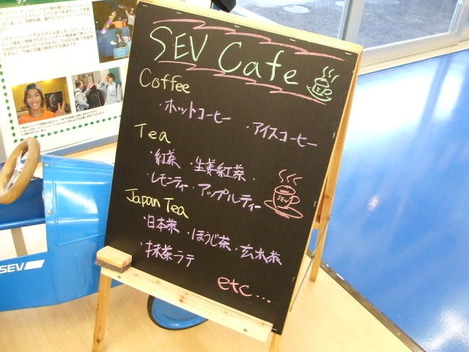 SEV Cafe
Coffee
・ホットコーヒー ・アイスコーヒー
Tea
・紅茶 ・生姜紅茶・
レモンティ・アップルティー
SEV
Japan Tea
・日本茶 ・ほうじ茶 ・玄米茶
・抹茶ラテ
etc...
SEV